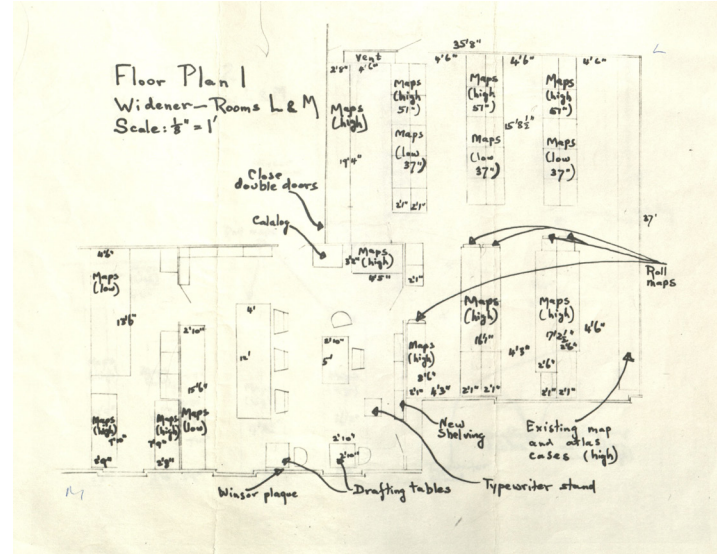 Floor Plan 1
Widener—Rooms L & M
Scale: ⅛" = 1'
35'8"
vent
2'8"
4'6"
4'6"
4'6"
4'6"
Maps
(high)
19'4"
Maps
(high
51")
Maps
(low
37")
2'1" 2'1"
Maps
(high
51")
Maps
(low
37")
15'8½"
Maps
(high
51")
Maps
(low
37")
37'
Close
double doors
Catalog
Maps
(high)
4'8"
2'1"
Roll
maps
4'6"
Maps
(low)
13'6"
2'10"
15'6"
Maps
(low)
4'
12'
2'10"
5'
Maps
(high)
8'6"
2'1" 4'3"
Maps
(high)
2'1" 2'1"
4'3"
Maps
(high)
17'2½"
2'6"
2'6"
2'1" 2'1"
4'6"
Maps
(high)
7'10"
2'9"
Maps
(high)
7'9"
2'8"
2'10"
2'10"
New
Shelving
Existing map
and atlas
cases (high)
Winsor plaque
Drafting tables
Typewriter stand
M
L